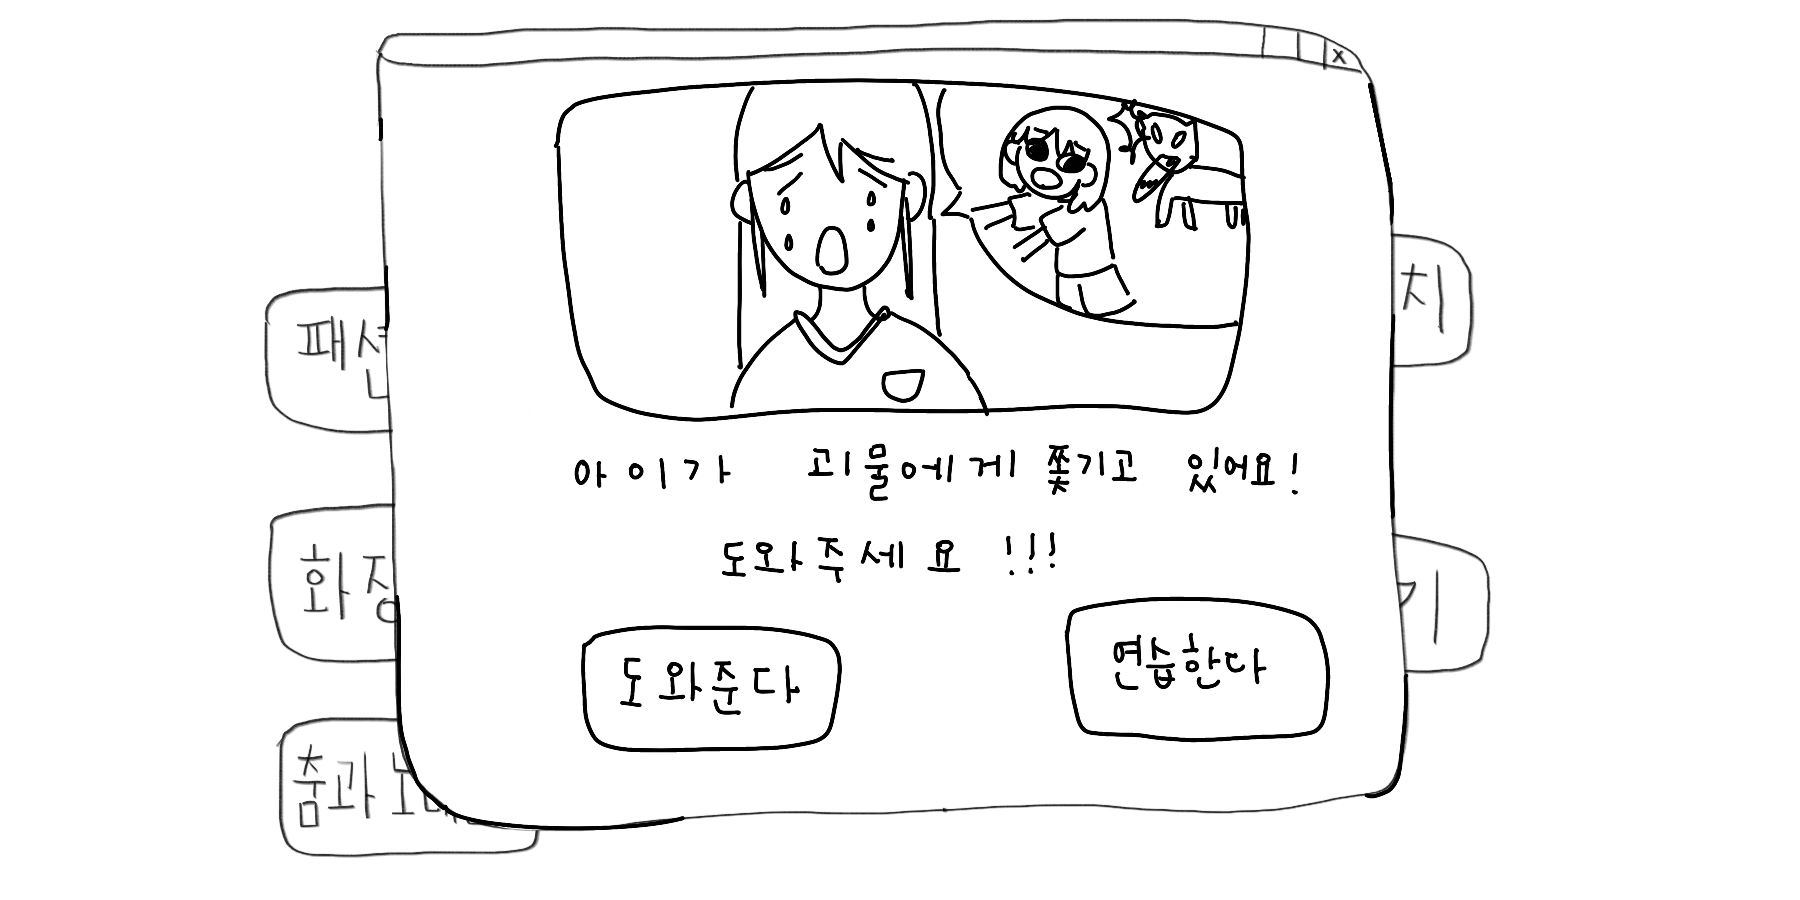 x
아이가 괴물에게 쫓기고 있어요!
도와주세요 !!!
도와준다
연습한다
화장
춤과
치
기